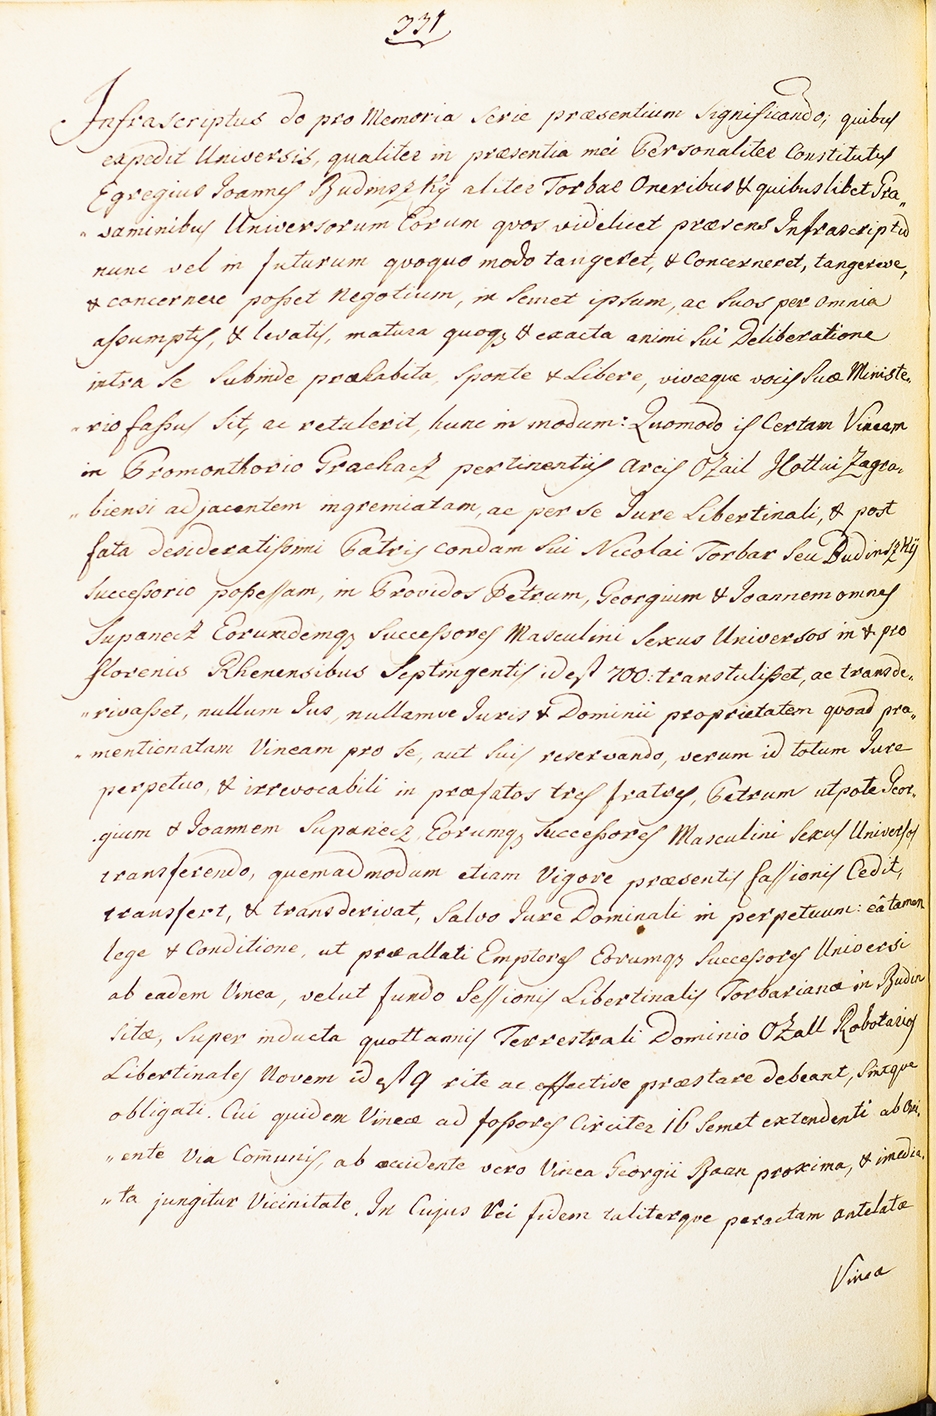 331
Infrascriptus do pro Memoria serie præsentium significando, quibus
expedit Universis, qualiter in præsentia mei Personaliter Constitutus
Egregius Joannes Budinszky aliter Torbar Oneribus & quibuslibet Gra„
„vaminibus Universorum Eorum quos videlicet præsens Infrascriptum
nunc vel in futurum quoquo modo tangeret, & Concerneret, tangereve,
& concernere posset Negotium, in semet ipsum, ac Suos per omnia
assumptis, & levatis, matura quoq3 & exacta animi sui Deliberatione
intra se subinde præhabita, sponte & Libere, vivæque vocis suæ Ministe„
„rio fassus sit, ac retulerit, hunc in modum: Quomodo is Certam Vineam
in Promonthorio Grachacz pertinentiis Arcis Ozail Jottui Zagra„
„biensi adjacentem ingremiatam, ac per se Jure Libertinali, & post
fata desideratissimi Patris condam sui Nicolai Torbar seu Budinszky
successorio possessam, in Providos Petrum, Georgium & Joannem omnes
Supanecz Eorumdemq3 Successores Masculini Sexus Universos in & pro
florenis Rhenensibus Septingentis id est 700: transtulisset, ac transde„
„rivasset, nullum Jus, nullamve Juris & Dominii proprietatem quoad præ„
„mentionatam Vineam pro se, aut suis reservando, verum id totum Jure
perpetuo, & irrevocabili in præfatos tres fratres, Petrum utpote Geor„
„gium & Joannem Supanecz, Eorumq3 Successores Masculini Sexus Universos
transferendo, quemadmodum etiam Vigore præsentis fassionis Cedit,
transfert, & transderivat, Salvo Jure Dominali in perpetuum: eâ tamen
lege & Conditione, ut præallati Emptores Eorumq3 Successores Universi
ab eadem Vinea, velut fundo Sessionis Libertinalis Torbarianæ in Budin
sitæ, super inducta quottannis Terrestrali Dominio Ozall Robotarios
Libertinales Novem id est 9 rite ac effective præstare debeant, sintque
obligati. Cui quidem Vineæ ad fossores Circiter 16 semet extendenti ab Ori„
„ente Via Com̃unis, ab occidente vero Vinea Georgii Baan proxima, & imedia„
„ta jungitur Vicinitate. In Cujus Rei fidem taliterque peractam antelatæ
Vineæ